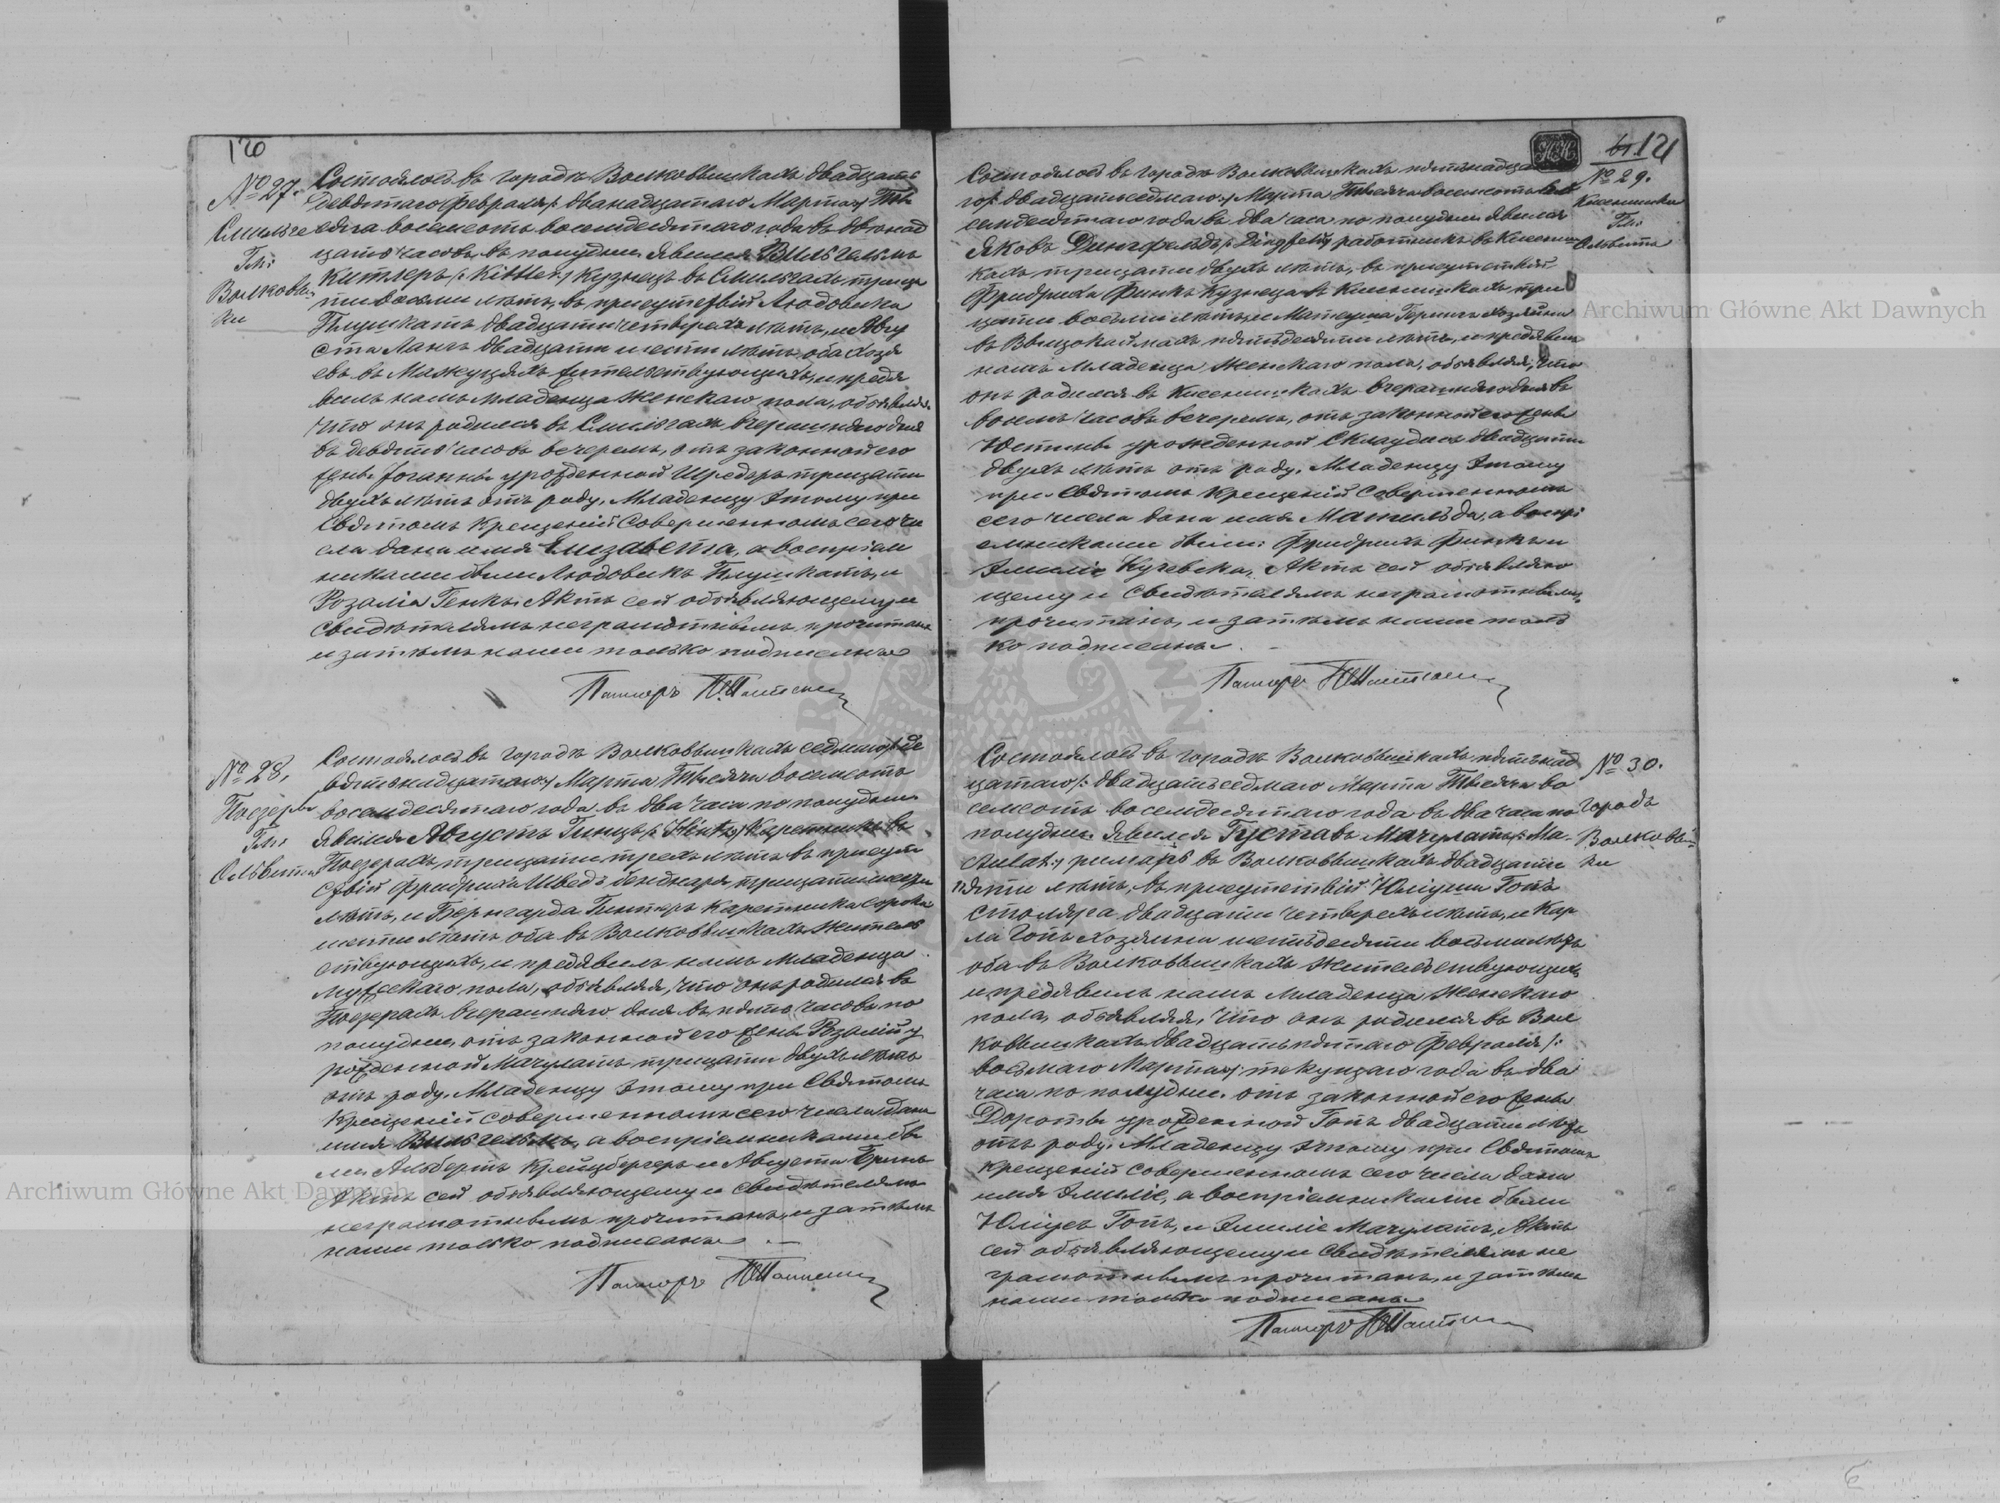 120
№ 27.
Смильге
Гм:
Волковы
ки
Состоялось въ городѣ Волковышкахъ двадцать
девятаго февраля /: двѣнадцатаго Марта :/ Ты
сяча восемсотъ восемдесятаго года въ двѣнад
цать часовъ въ полудни. Явился Вильгельмъ
Китлеръ /: Kittler :/ кузнецъ въ Смильгахъ трица
ти восьми лѣтъ, въ присутствіи Людовика
двадцати четырехъ лѣтъ, и Авгу
ста Лангъ двадцати шести лѣтъ, оба хозя
евъ въ жительствующихъ, и предъя
вилъ намъ младенца женскаго пола, объявляя,
что онъ родился въ Смильгахъ вчерашняго дня
въ девять часовъ вечеромъ, отъ законной его
жены Іоганны урожденной Шредеръ трицати
двухъ лѣтъ отъ роду. Младенцу этому при
Святомъ Крещеніи совершенномъ сего чи
сла дано имя Елизавета, а воспріем
никами были Людовикъ и
Розалія Генкъ. Актъ сей объявляющему и
свидѣтелямъ неграмотнымъ, прочитанъ
и затѣмъ нами только подписанъ
Пасторъ
№ 28.
Поезеры
Гм:
Ольвита
Состоялось въ городѣ Волковышкахъ седьмаго /: де
вятнадцатаго :/ Марта Тысяча восемсотъ
восемдесятаго года въ два часа по полудни.
Явился Августъ Гинцъ /: Hintz :/ Каретникъ въ
Поезерахъ, трицати трехъ лѣтъ въ присут
ствіи Фридриха Шведъ бенднаря, трицати шести
лѣтъ, и Бернгарда Гинтеръ Каретника сорока
шести лѣтъ оба въ Волковышкахъ житель
ствующихъ, и предъявилъ намъ младенца
мужескаго пола, объявляя, что онъ родился въ
Поезерахъ вчерашняго дня въ пять часовъ по
полудни, отъ законной его жены Розаліи у
рожденной Мачулатъ трицати двухъ лѣтъ
отъ роду. Младенцу этому при Святомъ
Крещеніи совершенномъ сего числа дано
имя Вильгельмъ, а воспріемниками бы
ли Альбертъ Крейцбергеръ и Августа
Актъ сей объявляющему и свидѣтелямъ
неграмотнымъ прочитанъ, и затѣмъ
нами только подписанъ
Пасторъ
121
№ 29.
Гм:
Ольвита
Состоялось въ городѣ Волковышкахъ пятнадца
го /: двадцать седмаго :/ Марта Тысяча восемсотъ во
семдесятаго года въ два часа по полудни. Явился
Яковъ Дингфельдъ /: Dingfeld :/ работникъ въ
кахъ трицати двухъ лѣтъ, въ присутствіи
Фридриха Финкъ Кузнеца въ три
цати восьми лѣтъ, и Матеуша Герингъ хозяина
въ пятьдесяти лѣтъ, и предъявилъ
намъ младенца женскаго пола, объявляя, что
онъ родился въ вчерашняго дня въ
восемь часовъ вечеромъ, отъ законной его жены
Юстины урожденной двадцати
двухъ лѣтъ отъ роду. Младенцу этому
при Святомъ Крещеніи совершенномъ
сего числа дано имя Матильда, а воспрі
емниками были: Фридрихъ Финкъ и
Эмилія Кучевска. Актъ сей объявляю
щему и свидѣтелямъ неграмотнымъ
прочитанъ, и затѣмъ нами толь
ко подписанъ.
Пасторъ
№ 30.
Городъ
Волковы
ки
Состоялось въ городѣ Волковышкахъ пятнад
цатаго /: двадцать седмаго Марта Тысяча во
семсотъ восемдесятаго года въ два часа по
полудни. Явился Густавъ Мачулатъ /: Ma-
culat :/ римарь въ Волковышкахъ двадцати
пяти лѣтъ, въ присутствіи Юліуша Гопъ
столяра двадцати четырехъ лѣтъ, и Кар
ла Гопъ хозяина шестьдесяти восьми лѣтъ
оба въ Волковышкахъ жительствующихъ,
и предъявилъ намъ младенца женскаго
пола, объявляя, что онъ родился въ Вол
ковышкахъ двадцать пятаго Февраля /:
восьмаго Марта :/ текущаго года въ два
часа по полудни. отъ законной его жены
Дороты урожденной Гопъ двадцати лѣтъ
отъ роду. Младенцу этому при Святомъ
Крещеніи совершенномъ сего числа дано
имя Эмилія, а воспріемниками были
Юліусъ Гопъ, и Эмилія Мачулатъ. Актъ
сей объявляющему и свидѣтелямъ не
грамотнымъ прочитанъ, и затѣмъ
нами только подписанъ
Пасторъ
Archiwum Główne Akt Dawnych
Archiwum Główne Akt Dawnych